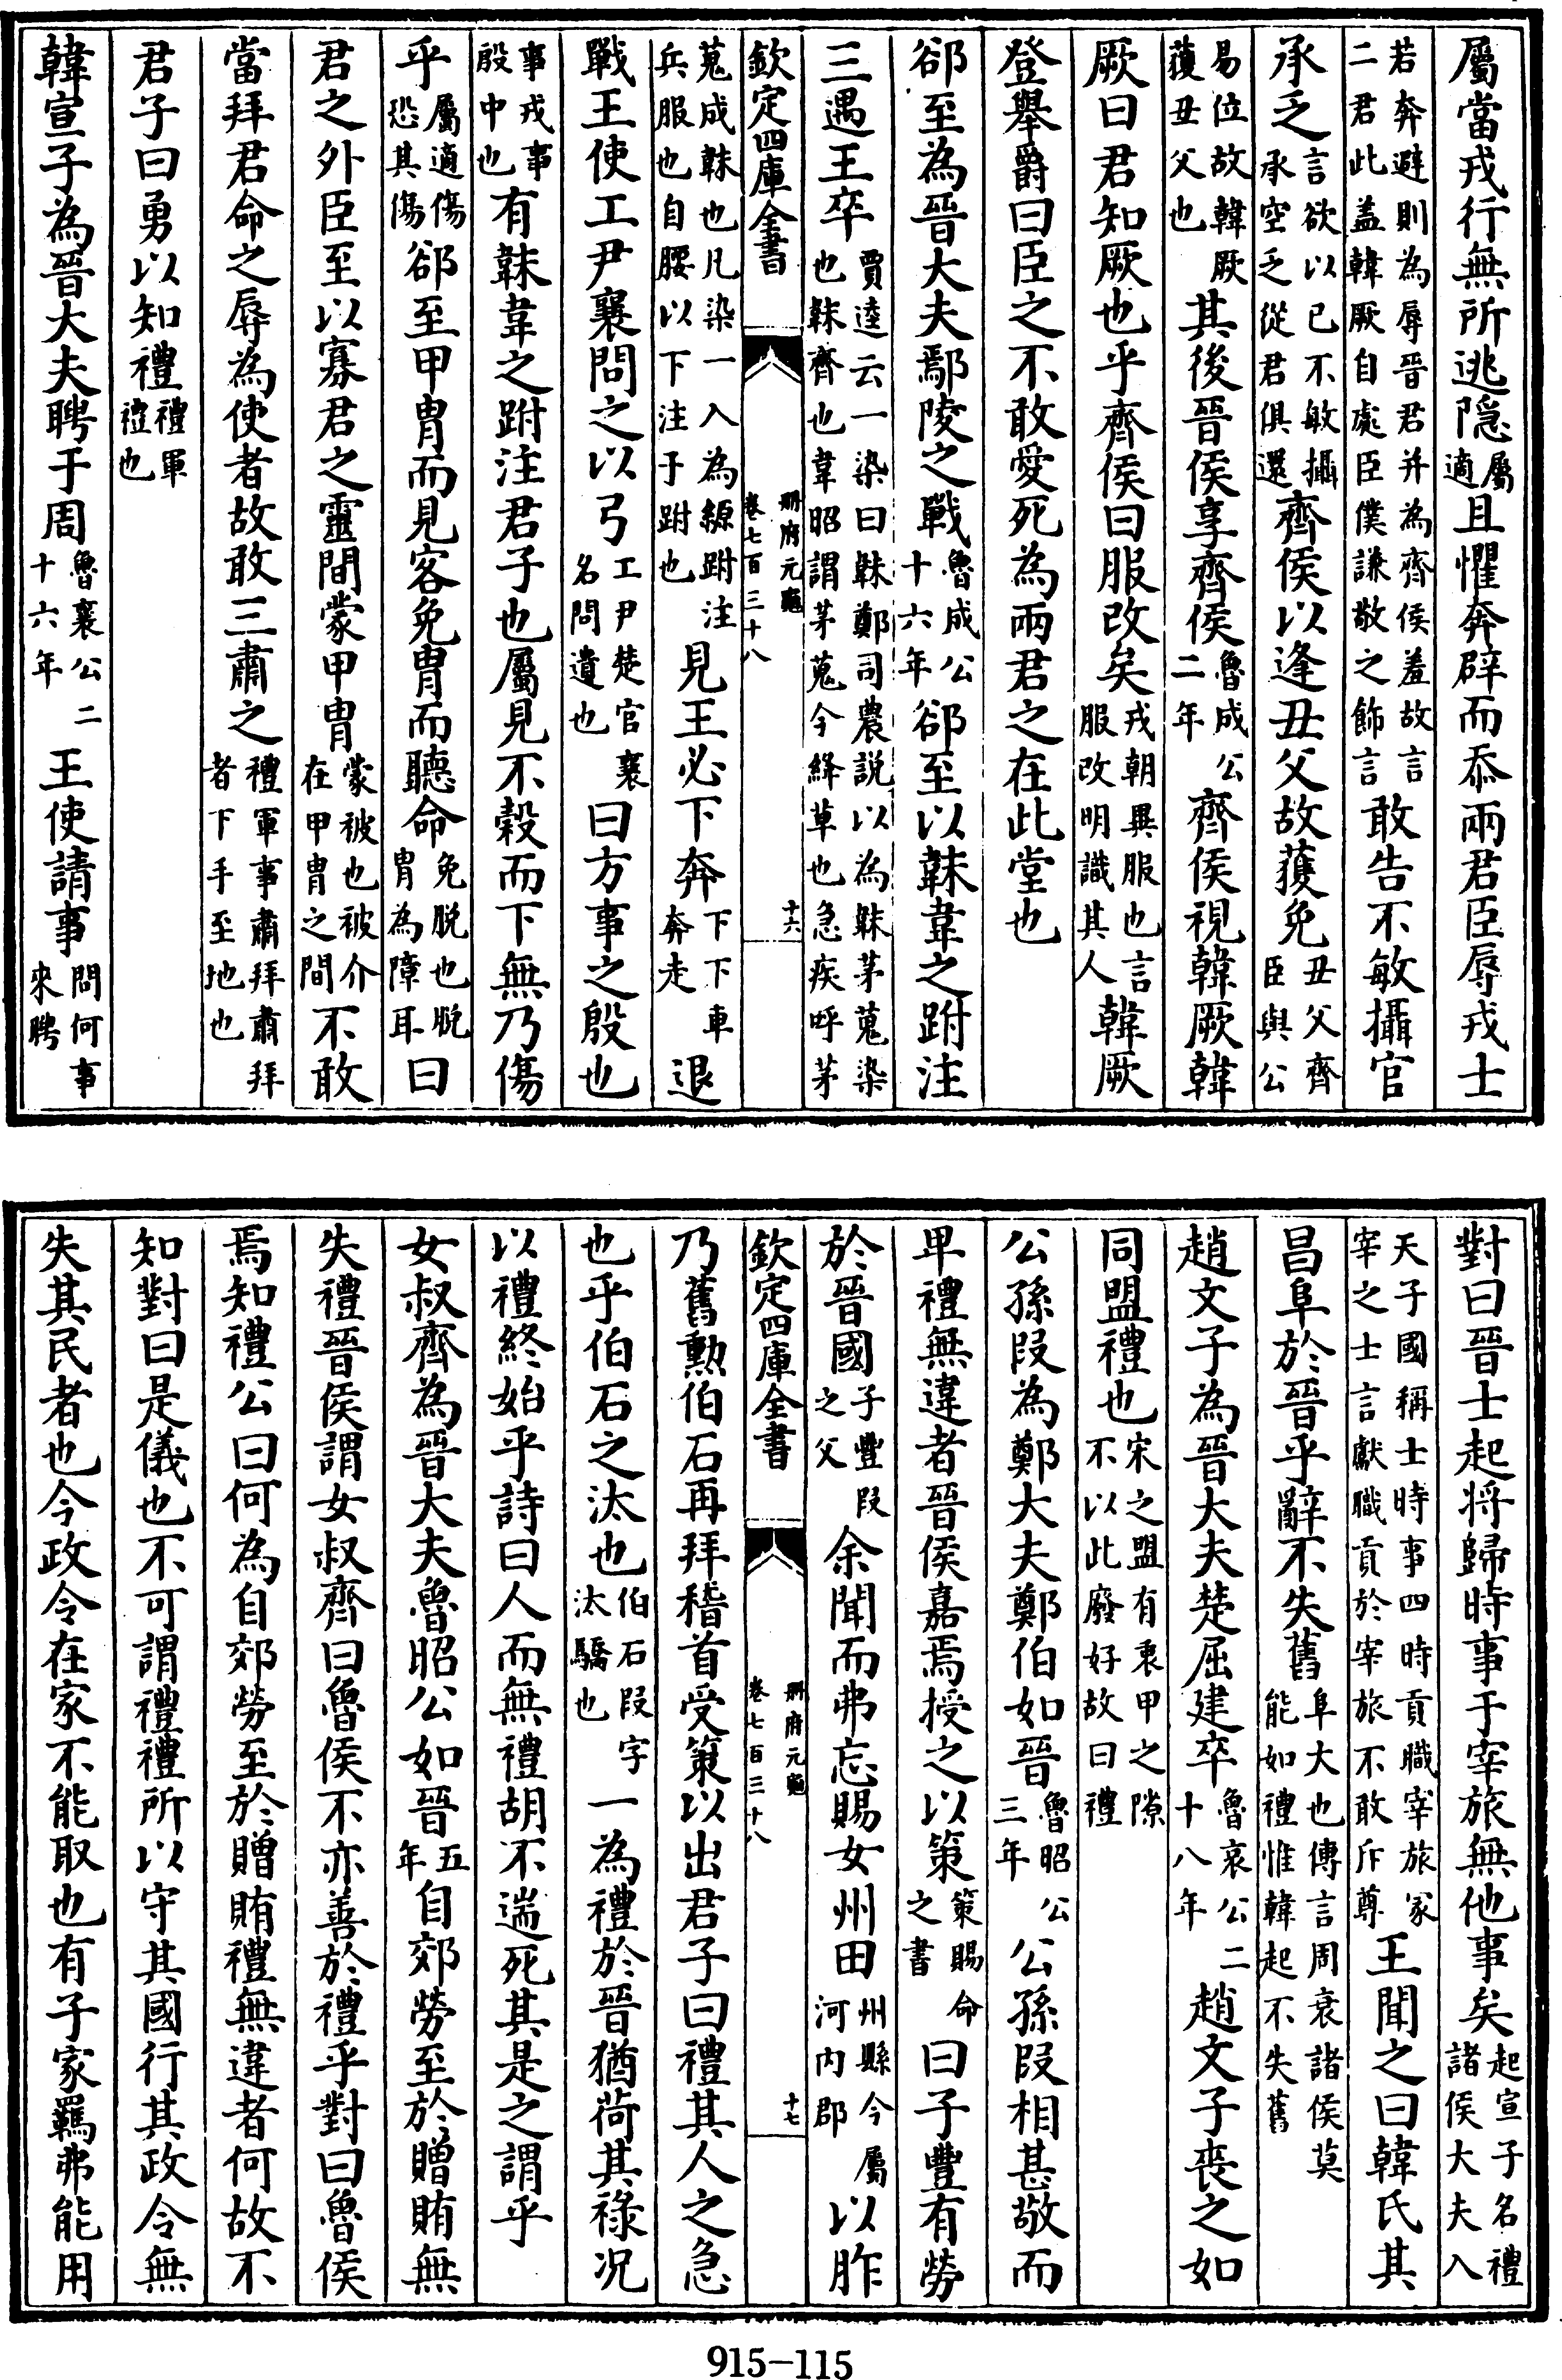 屬當戎行無所逃隠屬適且懼奔辟而忝兩君臣辱戎士
若奔避則為辱晉君并為齊侯羞故言二君此盖韓厥自處臣僕謙敬之飾言敢告不敏攝官
承乏言欲以已不敏攝承空乏從君俱還齊侯以逢丑父故獲免丑父齊臣與公
易位故韓厥獲丑父也其後晉侯享齊侯魯成公二年齊侯視韓厥韓
厥曰君知厥也乎齊侯曰服改矣戎朝異服也言服改明識其人韓厥
登舉爵曰臣之不敢愛死為兩君之在此堂也
郤至為晉大夫鄢陵之戰魯成公十六年郤至以韎韋之跗注
三遇王卒賈逵云一染曰韎鄭司農説以為韎茅蒐染也韎齊也韋昭謂茅蒐今絳草也急疾呼茅
欽定四庫全書 册府元龜卷七百三十八 十六
蒐成韎也凡染一入為縓跗注兵服也自腰以下注于跗也見王必下奔下下車奔走退
戰王使工尹襄問之以弓工尹楚官襄名問遺也曰方事之殷也
事戎事殷中也有韎韋之跗注君子也屬見不穀而下無乃傷
乎屬適傷恐其傷郤至甲胄而見客免胄而聽命免脱也脱胄為障耳曰
君之外臣至以寡君之靈間蒙甲胄蒙被也被介在甲胄之間不敢
當拜君命之辱為使者故敢三肅之禮軍事肅拜肅拜者下手至地也
君子曰勇以知禮禮軍禮也
韓宣子為晉大夫聘于周魯襄公二十六年王使請事問何事來聘
對曰晉士起將歸時事于宰旅無他事矣起宣子名禮諸侯大夫入
天子國稱士時事四時貢職宰旅冢宰之士言獻職貢於宰旅不敢斥尊王聞之曰韓氏其
昌阜於晉乎辭不失舊阜大也傳言周衰諸侯莫能如禮惟韓起不失舊
趙文子為晉大夫楚屈建卒魯哀公二十八年趙文子喪之如
同盟禮也宋之盟有衷甲之隙不以此廢好故曰禮
公孫段為鄭大夫鄭伯如晉魯昭公三年公孫段相甚敬而
卑禮無違者晉侯嘉焉授之以策策賜命之書曰子豐有勞
於晉國子豐段之父余聞而弗忘賜女州田州縣今屬河内郡以胙
欽定四庫全書 册府元龜卷七百三十八 十七
乃舊勲伯石再拜稽首受策以出君子曰禮其人之急
也乎伯石之汰也伯石段字汰驕也一為禮於晉猶荷其祿况
以禮終始乎詩曰人而無禮胡不遄死其是之謂乎
女叔齊為晉大夫魯昭公如晉五年自郊勞至於贈賄無
失禮晉侯謂女叔齊曰魯侯不亦善於禮乎對曰魯侯
焉知禮公曰何為自郊勞至於贈賄禮無違者何故不
知對曰是儀也不可謂禮禮所以守其國行其政令無
失其民者也今政令在家不能取也有子家羈弗能用
915-115